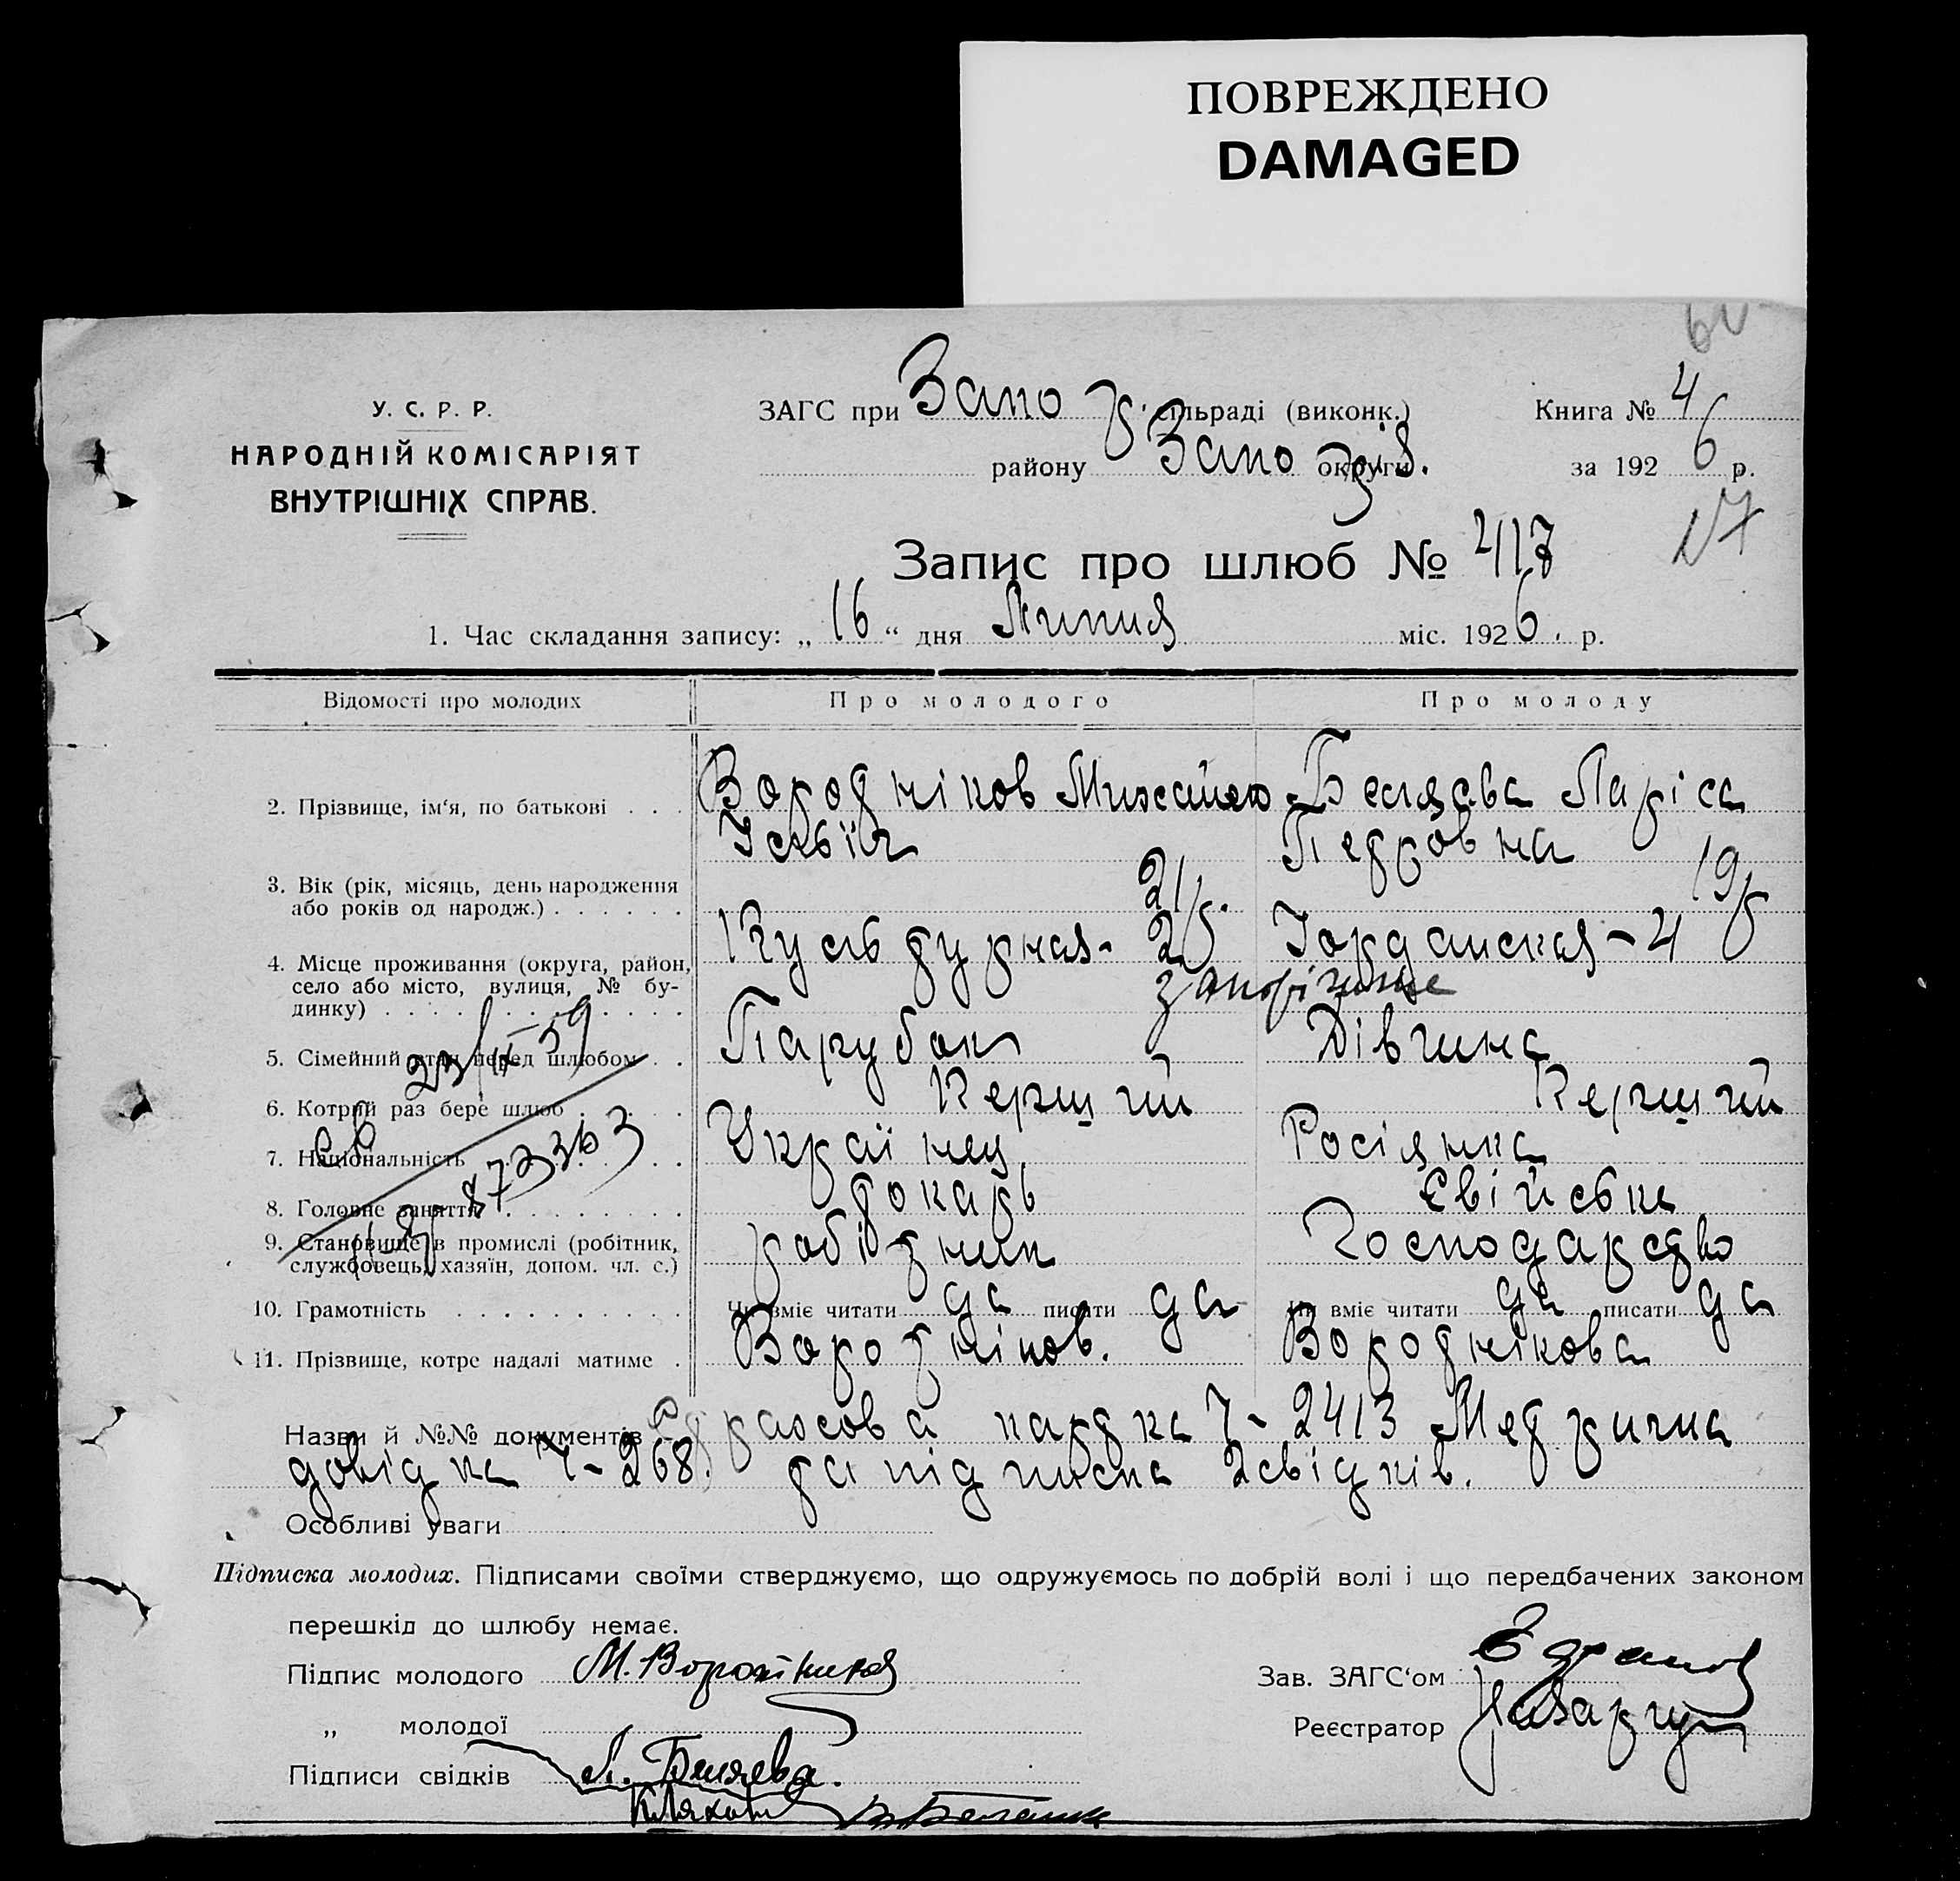 ПОВРЕЖДЕНО
DAMAGED
У. С. Р. Р.
НАРОДНІЙ КОМІСАРІЯТ
ВНУТРІШНІХ СПРАВ.
ЗАГС при Запо сільраді (виконк.) Книга № 4
району Запо округи за 1926 р.
Запис про шлюб № 417
1. Час складання запису: „16“ дня Липня міс. 1926. р.
Відомості про молодих Про молодого Про молоду
2. Прізвище, ім‘я, по батькові . . . Воротніков Михайло Беляева Ларіса
Ільїч Петровна
3. Вік (рік, місяць, день народження
або років од народж.) . . . . . . 21 19
4. Місце проживання (округа, район,
село або місто, вулиця, № бу-
динку) . . . . . . . . . . . . . Культурная - Іорданская - 4
Запоріжжє
5. Сімейний стан перед шлюбом . . Парубок Дівчина
6. Котрий раз бере шлюб . . . . Перший Перший
7. Національність . . . . . . . Українец Росіянка
8. Головне заняття . . . . . . . . токарь
9. Становище в промислі (робітник,
службовець, хазяїн, допом. чл. с.) робітник Господарство
10. Грамотність . . . . . . . . . . Чи вміє читати да писати да Чи вміє читати да писати да
11. Прізвище, котре надалі матиме . Воротніков. Воротнікова
Назви й №№ документів страхова картка Ч - 2413 Метрична
довідка Ч - 268. та підписка 2 свідків.
Особливі уваги
Підписка молодих. Підписами своїми стверджуємо, що одружуємось по добрій волі і що передбачених законом
перешкід до шлюбу немає.
Підпис молодого М. Воротников Зав. ЗАГС‘ом
„ молодої Реєстратор
Підписи свідків Л. Беляева.